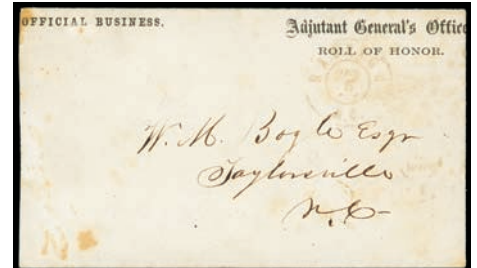 OFFICIAL BUSINESS.
Adjutant General's Office
ROLL OF HONOR.
W. M. Bogle Esqr
Taylorsville
N.C.